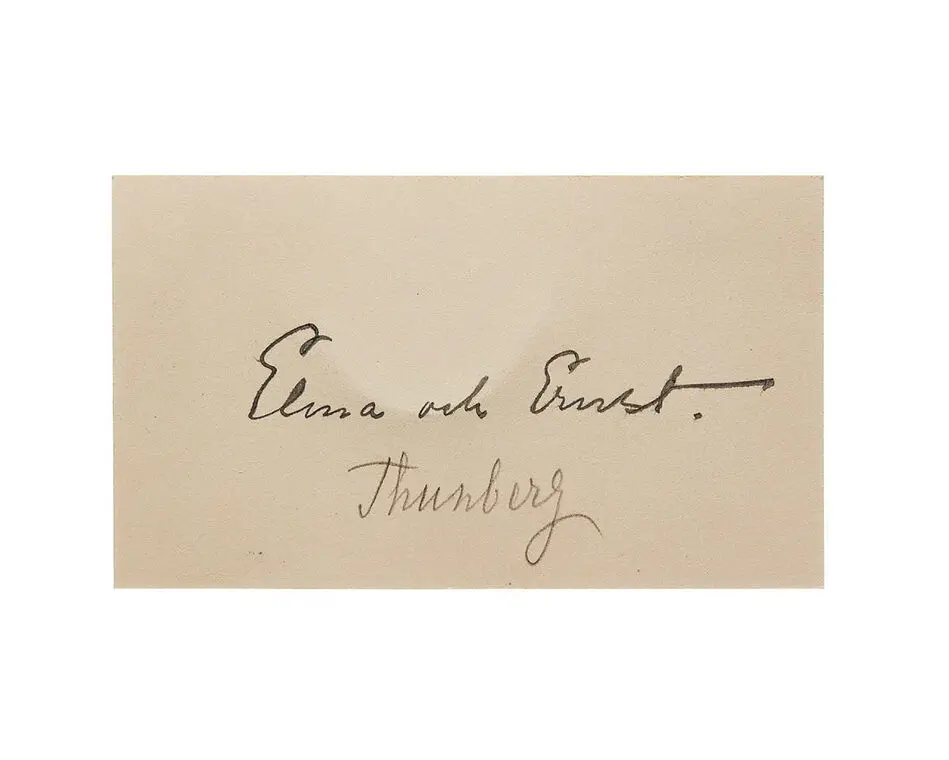 Elma och Ernst.
Thunberg